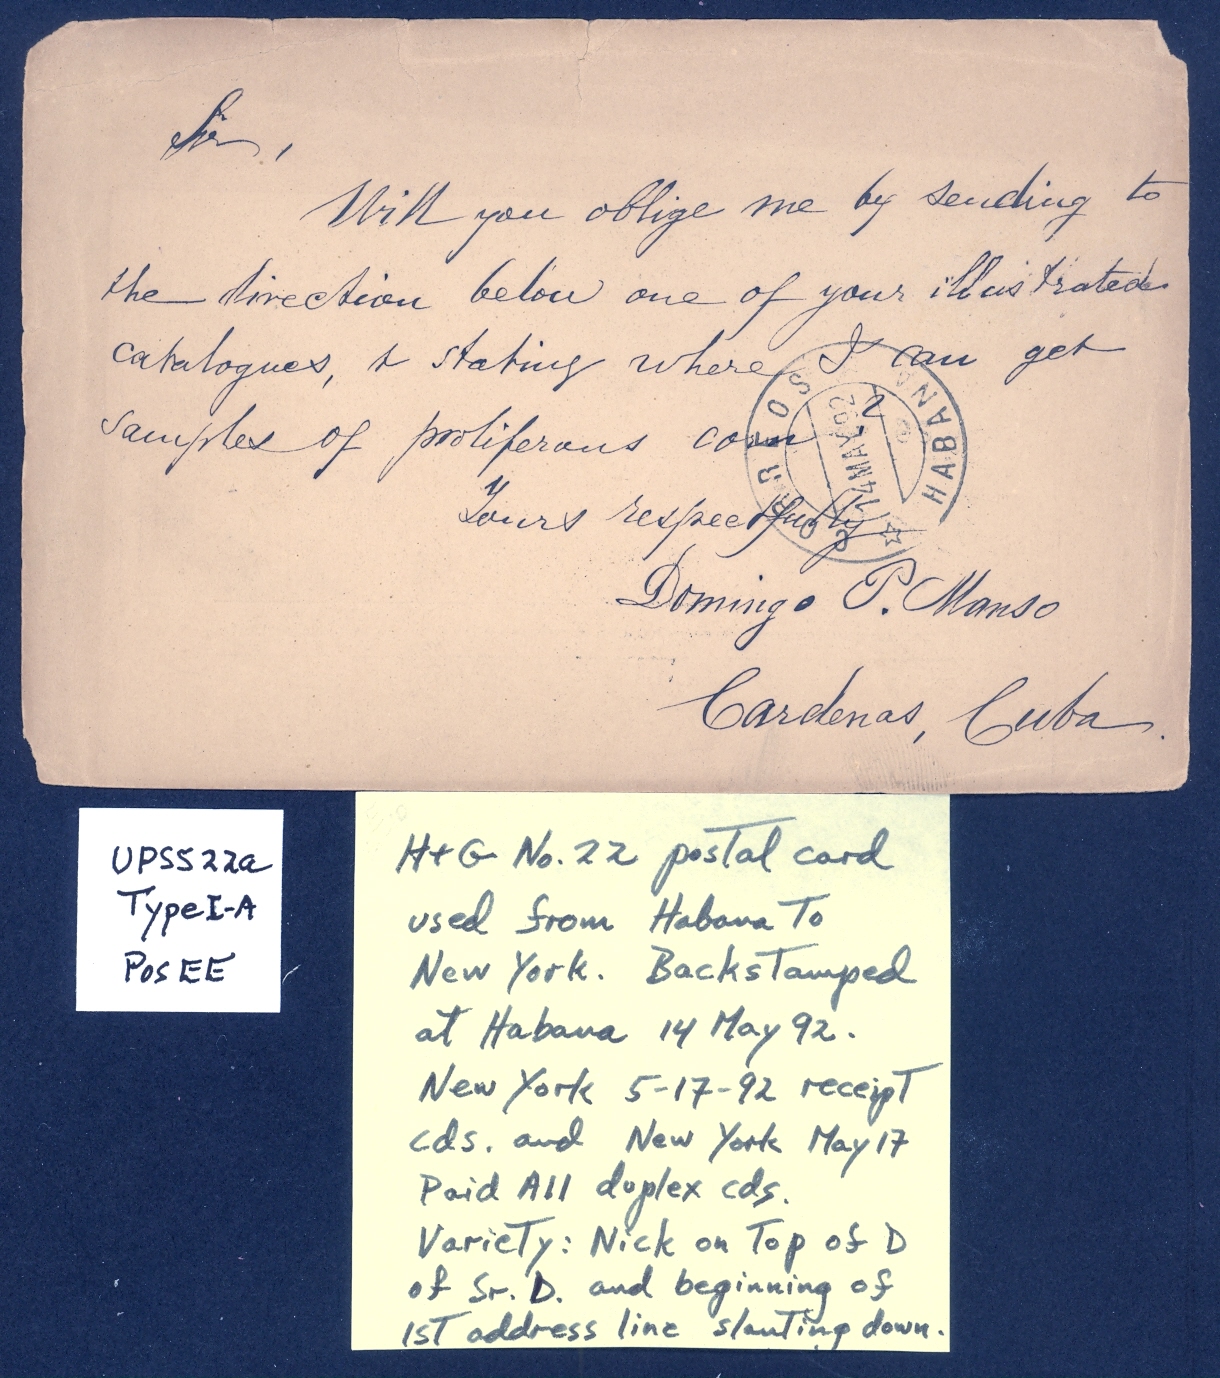 Sir,
Will you oblige me by sending to
the direction below one of your illustrated
catalogues, & stating where I can get
samples of proliferous corn?
Yours respectfully
Domingo P. Manso
Cardenas, Cuba.
CORREOS
14 MAY 92
HABANA
UPSS 22a
Type I-A
Pos EE
H+G No. 22 postal card
used from Habana To
New York. Backstamped
at Habana 14 May 92.
New York 5-17-92 receipt
cds. and New York May 17
Paid All duplex cds.
Variety: Nick on Top of D
of Sr. D. and beginning of
1st address line slanting down.